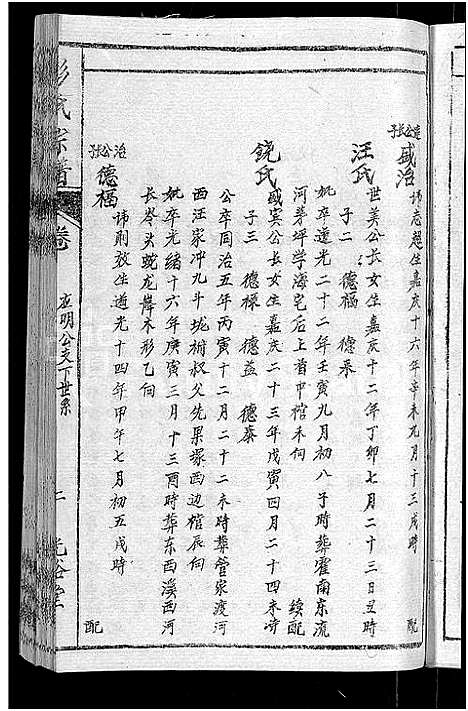 建公长子 盛治 讳志超生嘉庆十六年辛未元月十三戌時 配
汪氏 世美公长女生嘉庆十二年丁卯七月二十三日丑時
子二 德福 德泰
妣卒道光二十二年壬寅九月初八子時葬霍南东流
河茅坪学海宅后上首中棺禾向 续配
饶氏 盛宾公长女生嘉庆二十三年戊寅四月二十四未時
子三 德禄 德益 德泰
公卒同治五年丙寅十二月二十二未時葬管家渡河
西汪家冲九斗垅祔叔父先果塚西边棺辰向
妣卒光緒十六年庚寅三月十三酉時葬东西溪西河
长岑头蛇龙岸木形乙向
治公长子 德福 讳則放生道光十四年甲午七月初五戌時 配
彭氏宗普
卷
应明公支丁世系
二
光裕堂